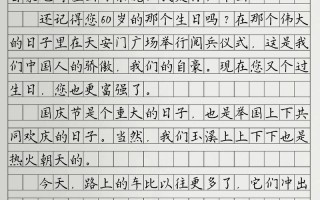 还记得您60岁的那个生日吗?在那个伟大
的日子里在天安门广场举行阅兵仪式，这是我
们中国人的骄傲，我们的自豪。现在您又个过
生日，您也更富强了。
国庆节是个重大的日子，也是举国上下共
同欢庆的日子。当然，我们玉溪上上下下也是
热火朝天的。
今天，路上的车比以往更多了，它们冲出